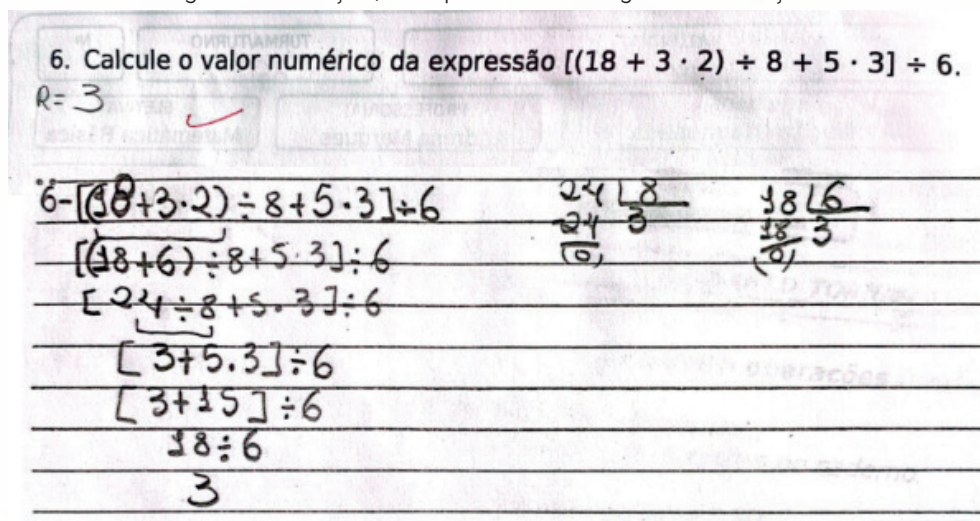 6. Calcule o valor numérico da expressão [(18 + 3 · 2) ÷ 8 + 5 · 3] ÷ 6.
R= 3
6-[(18+3·2)÷8+5·3]÷6
[(18+6)÷8+5·3]÷6
[24÷8+5.3]÷6
[3+5.3]÷6
[3+15]÷6
18÷6
3
24 8
-24 3
(0)
18 6
18 3
(0)